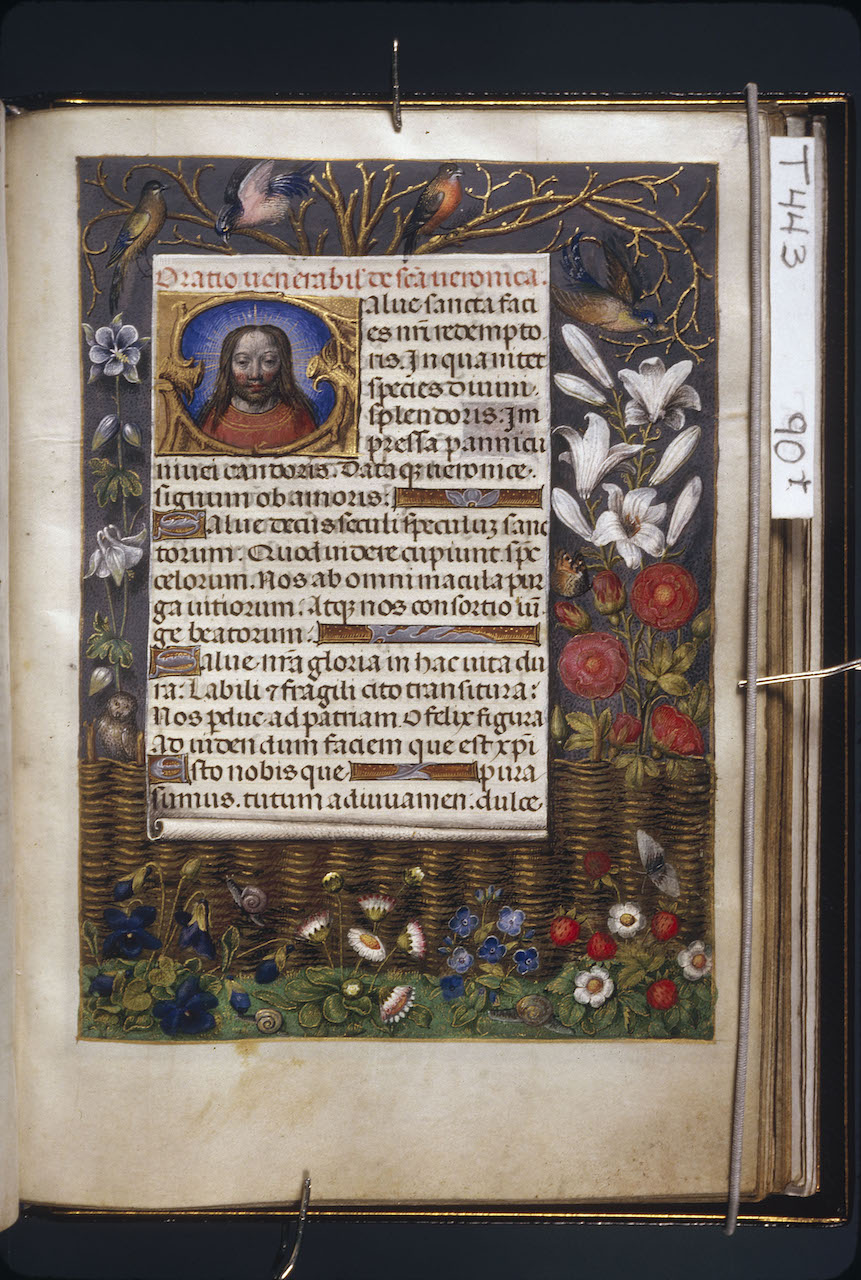 Oratio venerabil' de scā veronica.
Salue sancta faci
es nr̄i redempto
ris. In qua nitet
species diuini.
splendoris. Im
pressa pannicu
niuei candoris. Dataq3 veronice.
signum ob amoris:
Salue decus seculi speculuz sanc
torum. Quod videre cupiunt. spc̄
celorum. Nos ab omni macula pur
ga uitiorum. Atq3 nos consortio iū
ge beatorum.
Salue nr̄a gloria in hac uita du
ra: Labili ⁊ fragili cito transitura:
Nos ꝑduc ad patriam. O felix figura
Ad uidendum faciem que est xp̄i
Esto nobis que pura
sumus. tutum adiuuamen. dulce
T443
90r